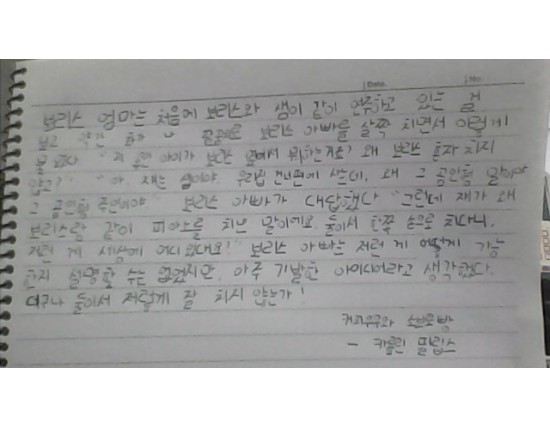 Date No
보리스 엄마는 처음에 보리스와 샘이 같이 연주하고 있는 걸
보고 약간 팔꿈치로 보리스 아빠를 살짝 치면서 이렇게
물었다. "저 아이가 보리스 옆에서 뭐하는거죠? 왜 보리스 혼자 치지
않고?" "아, 쟤는 샘이야. 우리집 건너편에 사는데, 왜 그 공인중 말이야
그 공인중 주인애야" 보리스 아빠가 대답했다 "그런데 쟤가 왜
보리스랑 같이 피아노를 치냔 말이에요. 둘이서 한쪽 손으로 치다니.
저런 게 세상에 어디있대요!" 보리스 아빠는 저런 게 어떻게 가능
한지 설명할 수는 없었지만, 아주 기발한 아이디어라고 생각했다.
더구나 둘이서 저렇게 잘 치지 않는가!
커피우유와 소보로빵
- 카롤린 필립스